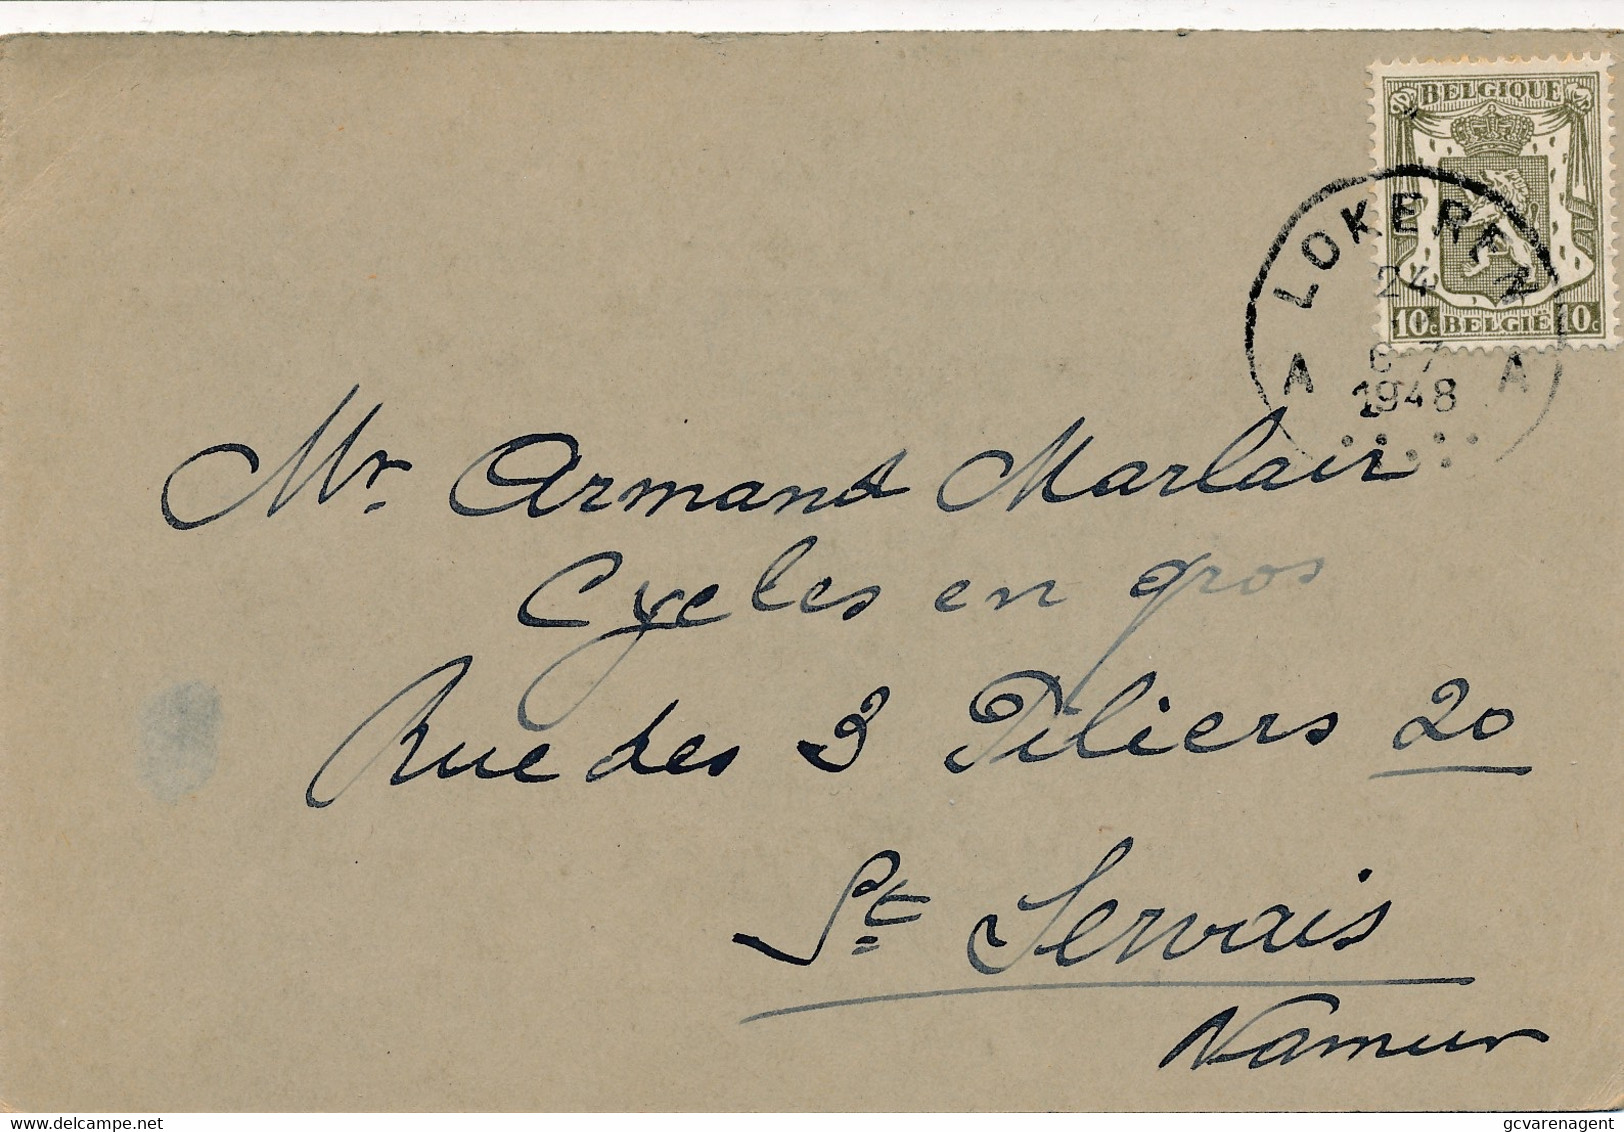 BELGIQUE
10c BELGIË 10c
LOKEREN
24
6-7
A 1948 A
Mr. Armand Marlair
Cycles en gros
Rue des 3 Piliers 20
St Servais
Namur
© delcampe.net
gcvarenagent